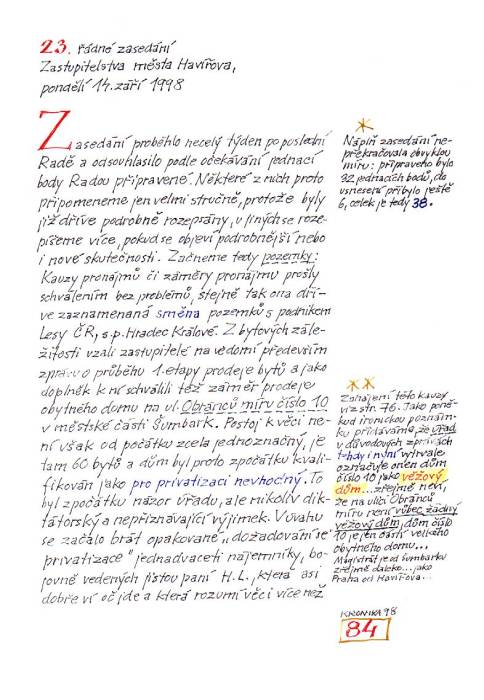 23. řádné zasedání
Zastupitelstva města Havířova,
pondělí 14. září 1998
Zasedání proběhlo necelý týden po poslední
Radě a odsouhlasilo podle očekávání jednací
body Radou připravené. Některé z nich proto
připomeneme jen velmi stručně, protože byly
již dříve podrobně rozepsány, u jiných se roze-
píšeme více, pokud se objeví podrobnější nebo
i nové skutečnosti. Začneme tedy pozemky:
Kauzy pronájmů či záměry pronájmu prošly
schválením bez problémů, stejně tak ona dří-
ve zaznamenaná směna pozemků s podnikem
Lesy ČR, s.p. Hradec Králové. Z bytových zále-
žitostí vzali zastupitelé na vědomí především
zprávu o průběhu 1. etapy prodeje bytů a jako
doplněk k ní schválili též záměr prodeje
obytného domu na ul. Obránců míru číslo 10
v městské části Šumbark. Postoj k věci ne-
ní však od počátku zcela jednoznačný, je
tam 60 bytů a dům byl proto zpočátku kvali-
fikován jako pro privatizaci nevhodný. To
byl zpočátku názor úřadu, ale nikoliv dik-
tátorský a nepřiznávající výjimek. V úvahu
se začalo brát opakované "dožadování se
privatizace" jednadvaceti nájemníky, bo-
jovně vedených jistou paní H.L., která asi
dobře ví oč jde a která rozumí věci více než
Náplň zasedání ne-
překračovala obvyklou
míru: připraveno bylo
32 jednacích bodů, do
usnesení přibylo ještě
6, celek je tedy 38.
Zahájení této kauzy
viz str. 76. Jako poně-
kud ironickou poznám-
ku přidáváme, že úřad
v důvodových zprávách
tehdy i nyní vytrvale
označuje onen dům
číslo 10 jako věžový
dům... zřejmě neví,
že na ulici Obránců
míru není vůbec žádný
věžový dům, dům číslo
10 je jen částí velkého
obytného domu...
Magistrát je od Šumbarku
zřejmě daleko... jako
Praha od Havířova...
KRONIKA 98
84